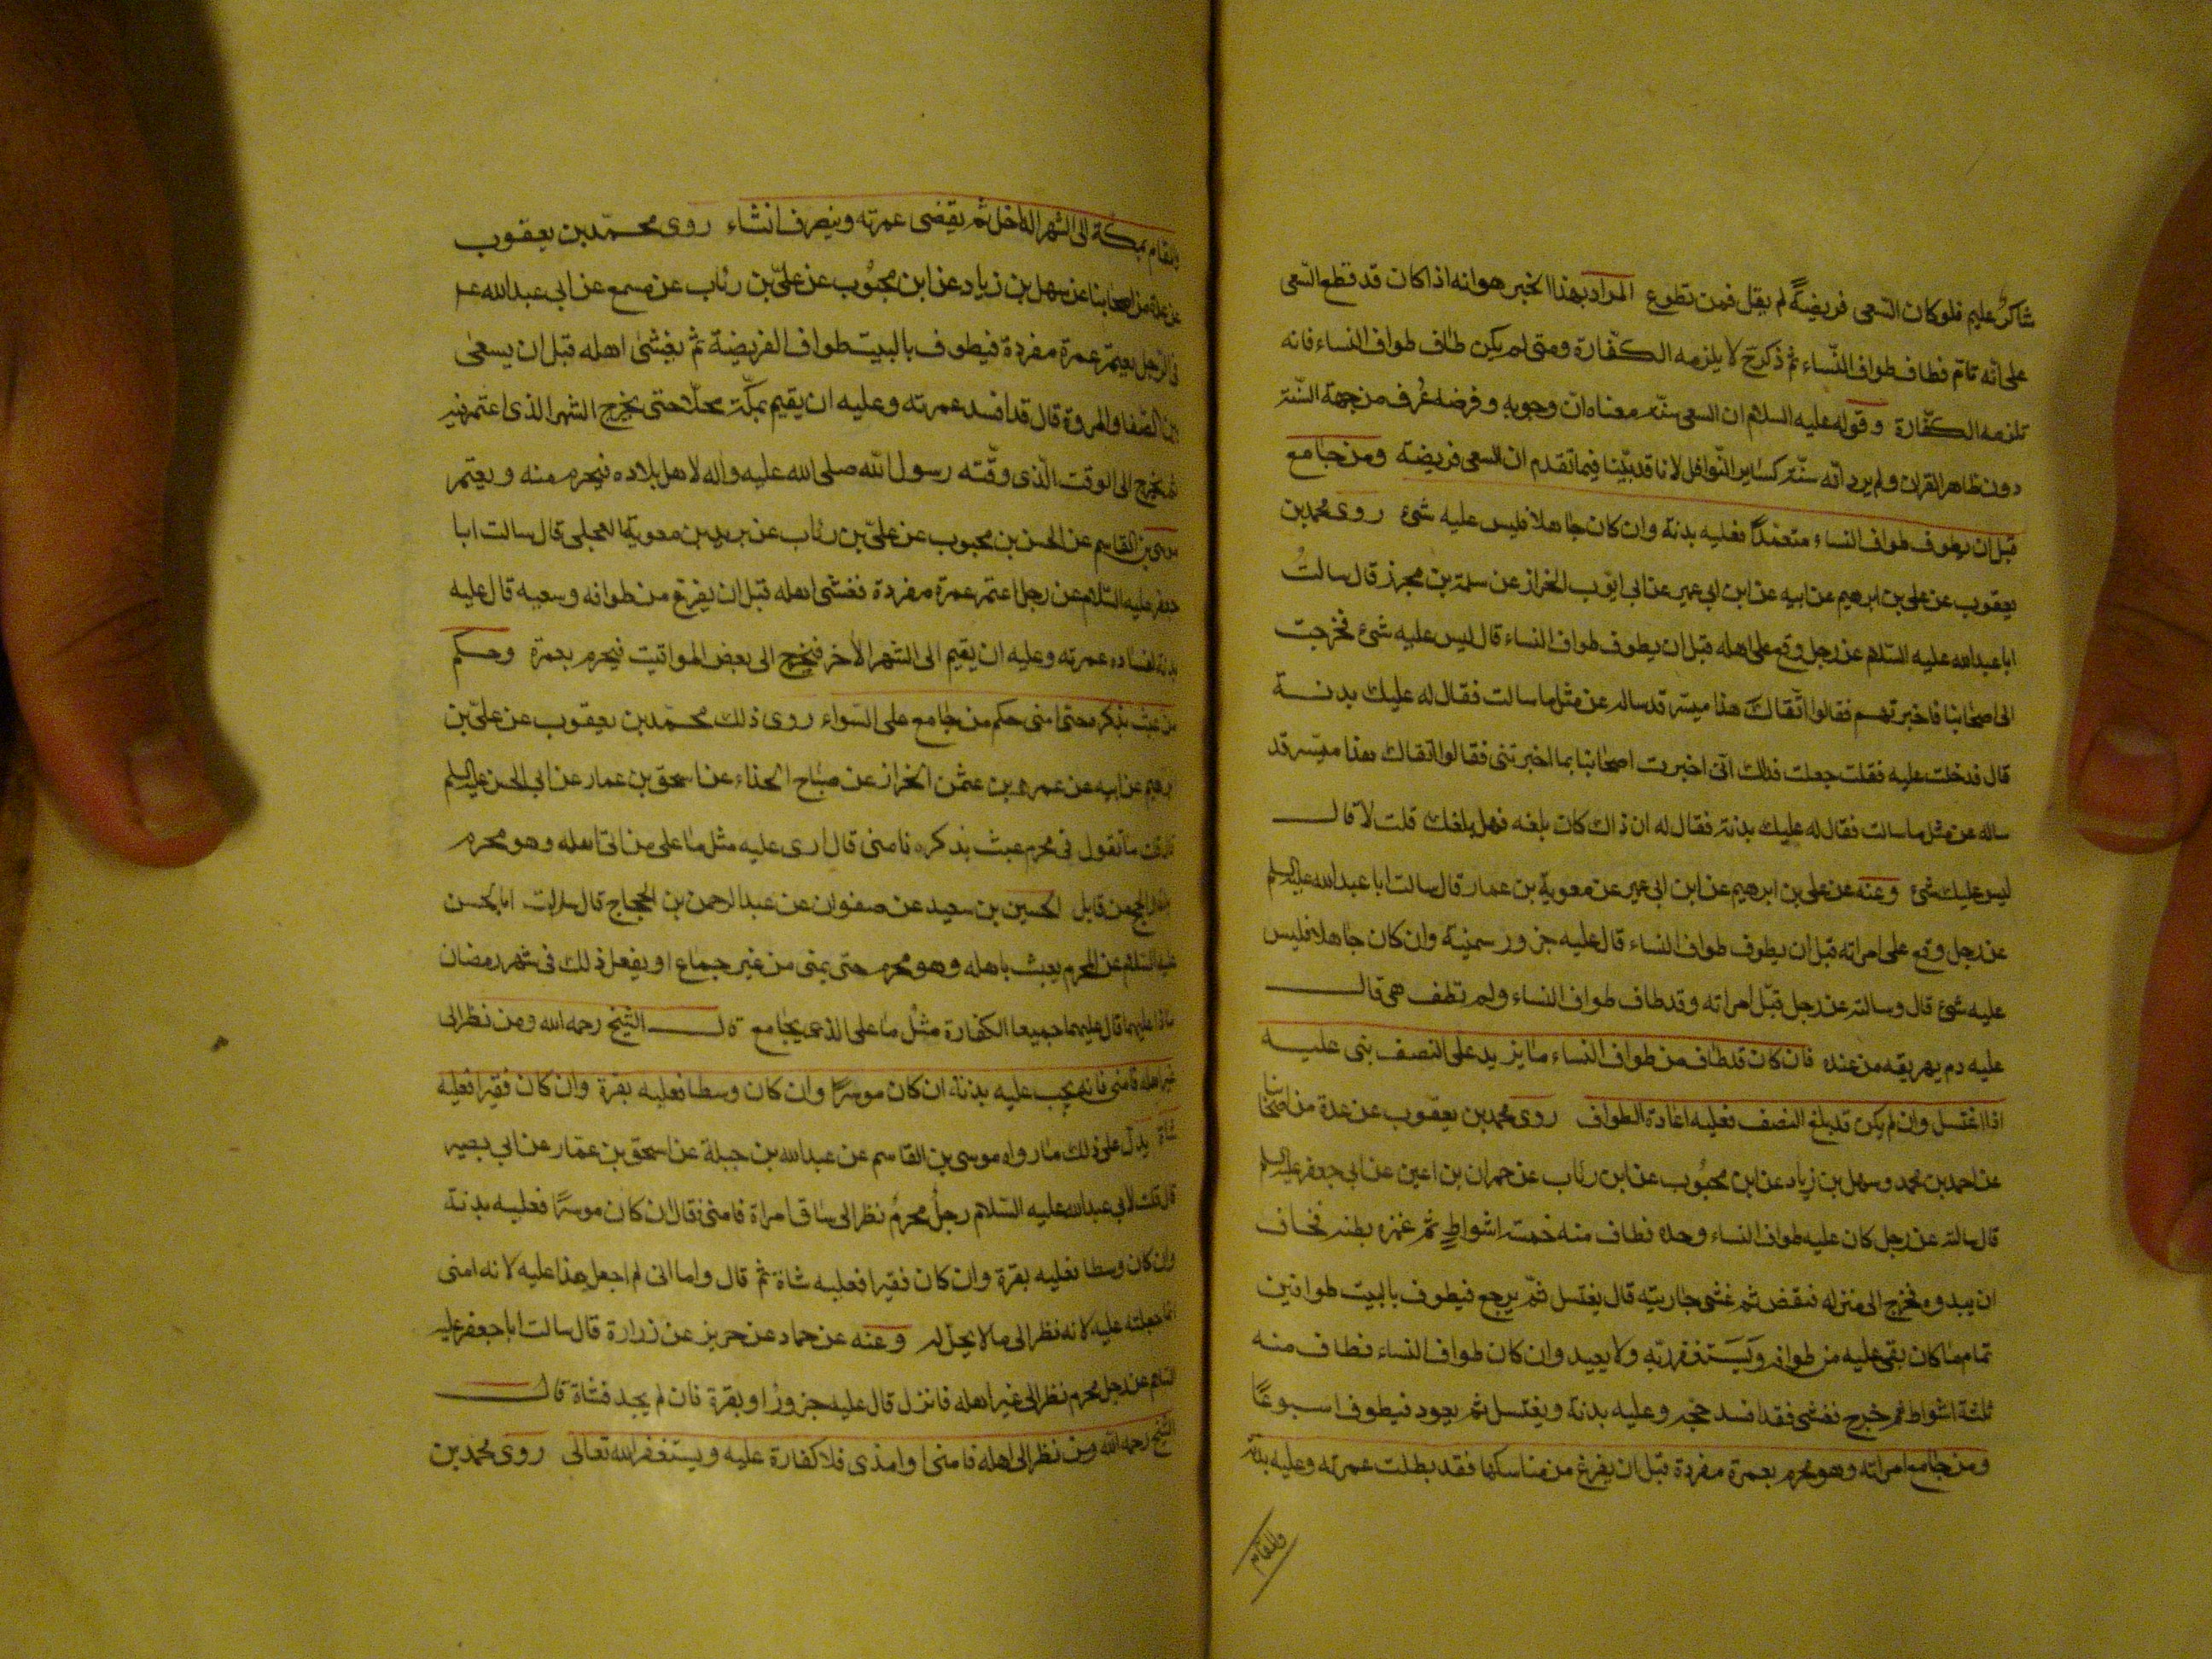 شاكر عليم فلو كان السعى فريضة لم يقل فمن تطوع المراد بهذا الخبر هو انه اذا كان قد قطع السعى
على انه تام فطاف طواف النساء ثم ذكر ح لا يلزمه الكفارة ومتى لم يكن طاف طواف النساء فانه
تلزمه الكفارة وقوله عليه السلام ان السعى سنة معناه ان وجوبه وفرضه عُرف من جهة السنة
دون ظاهر القران ولم يرد انه سنة كساير النوافل لانا قد بيّنا فيما تقدم ان السعى فريضة ومن جامع
قبل ان يطوف طواف النساء متعمدًا فعليه بدنة وان كان جاهلا فليس عليه شئ روى محمد بن
يعقوب عن على بن ابرهيم عن ابيه عن ابن ابى عمير عن ابى ايوب الخراز عن سلمة بن محرز قال سالتُ
ابا عبدالله عليه السلام عن رجل وقع على اهله قبل ان يطوف طواف النساء قال ليس عليه شئ فخرجت
الى اصحابنا فاخبرتهم فقالوا اتّقاك هذا ميسر قد ساله عن مثل ما سالت فقال له عليك بدنة
قال فدخلت عليه فقلت جعلت فداك انى اخبرت اصحابنا بما اخبرتنى فقالوا اتقاك هذا ميسر قد
ساله عن مثل ما سالت فقال له عليك بدنة فقال له ان ذاك كان بلغه فهل بلغك قلت لا قال
ليس عليك شئ وعنه عن على بن ابرهيم عن ابن ابى عمير عن معوية بن عمار قال سالت ابا عبدالله عليه السلم
عن رجل وقع على امراته قبل ان يطوف طواف النساء قال عليه جزور سمينة وان كان جاهلا فليس
عليه شئ قال وسالته عن رجل قبّل امراته وقد طاف طواف النساء ولم تطف هى قال
عليه دم يهريقه من عنده فان كان قد طاف من طواف النساء ما يزيد على النصف بنى عليه
اذا اغتسل وان لم يكن قد بلغ النصف فعليه اعادة الطواف روى محمد بن يعقوب عن عدة من اصحابنا
عن احمد بن محمد وسهل بن زياد عن ابن محبوب عن ابن رئاب عن حمران بن اعين عن ابى جعفر عليه السلم
قال سالته عن رجل كان عليه طواف النساء وحده فطاف منه خمسة اشواطٍ ثم غمزه بطنه فخاف
ان يبدوه فخرج الى منزله فنقض ثم غشى جاريته قال يغتسل ثمّ يرجع فيطوف بالبيت طوافين
تمام ما كان بقى عليه من طوافه وَيَستغفر ربّه ولا يعيد وان كان طواف النساء فطاف منه
ثلثة اشواط ثم خرج فغشى فقد افسد حجه وعليه بدنة ويغتسل ثم يعود فيطوف اسبوعًا
ومن جامع امراته وهو محرم بعمرة مفردة قبل ان يفرغ من مناسكها فقد بطلت عمرته وعليه بدنة
والمقام
والمقام بمكة الى الشهر الداخل ثم يقضى عمرته وينصرف ان شاء روى محمّد بن يعقوب
عن عدة من اصحابنا عن سهل بن زياد عن ابن محبُوب عن علىّ بن رئاب عن مسمع عن ابى عبدالله عـ
فى الرجل يعتمر عمرة مفردة فيطوف بالبيت طواف الفريضة ثم يغشى اهله قبل ان يسعى
بين الصفا والمروة قال قد افسد عمرته وعليه ان يقيم بمكّة محلّا حتى يخرج الشهر الذى اعتمر فيه
ثم يخرج الى الوقت الّذى وقّته رسول الله صلى الله عليه واله لاهل بلاده فيحرم منه ويعتمر
موسى بن القاسم عن الحسن بن محبوب عن علىّ بن رئاب عن بريد بن معوية العجلى قال سالت ابا
جعفر عليه السّلام عن رجل اعتمر عمرة مفردة فغشى اهله قبل ان يفرغ من طوافه وسعيه قال عليه
بدنة لفساده عمرته وعليه ان يقيم الى الشهر الاخر فيخرج الى بعض المواقيت فيحرم بعمرة وحكم
من عبث بذكره حتى امنى حكم من جامع على السّواء روى ذلك محمّد بن يعقوب عن علىّ بن
ابرهيم عن ابيه عن عمرو بن عثمن الخراز عن صبّاح الحذاء عن اسحق بن عمار عن ابى الحسن عليه السلم
قال قلت ما تقول فى محرم عبث بذكره فامنى قال ارى عليه مثل ما على من اتى اهله وهو محرم
بدنة والحج من قابل الحسين بن سعيد عن صفوان عن عبد الرحمن بن الحجاج قال سالت ابا الحسن
عليه السّلام عن المحرم يعبث باهله وهو محرم حتى يمنى من غير جماع او يفعل ذلك فى شهر رمضان
ماذا عليهما قال عليهما جميعا الكفارة مثل ما على الذى يجامع قال الشيخ رحمه الله ومن نظر الى
غير اهله فامنى فانه يجب عليه بدنة ان كان موسرًا وان كان وسطا فعليه بقرة وان كان فقيرا فعليه
شاة يدلّ على ذلك ما رواه موسى بن القاسم عن عبدالله بن جبلة عن اسحق بن عمّار عن ابى بصير
قال قلت لابى عبدالله عليه السّلام رجلٌ محرمٌ نظر الى ساق امراة فامنى فقال ان كان موسرًا فعليه بدنة
وان كان وسطا فعليه بقرة وان كان فقيرا فعليه شاة ثمّ قال واما انى لم اجعل هذا عليه لانه امنى
انما جعلته عليه لانه نظر الى ما لا يحلّ له وعنه عن حماد عن حريز عن زرارة قال سالت ابا جعفر عليه
السلام عن رجل محرم نظر الى غير اهله فانزل قال عليه جزورٌ او بقرة فان لم يجد فشاة قال
الشيخ رحمه الله ومن نظر الى اهله فامنى او امذى فلا كفارة عليه ويستغفر الله تعالى روى محمد بن